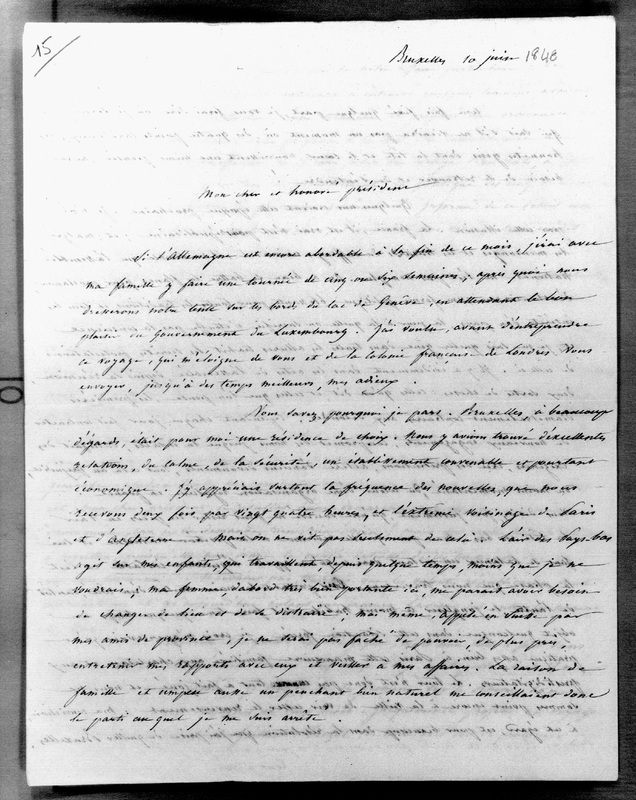 15
Bruxelles 10 juin 1848
Mon cher et honoré président
Si l'Allemagne est encore abordable à la fin de ce mois, j'irai avec
ma famille y faire une tournée de cinq ou six semaines, après quoi nous
dresserons notre tente sur les bords du lac de Genève, en attendant le bon
plaisir du Gouvernement du Luxembourg. J'ai voulu, avant d'entreprendre
ce voyage, qui m'éloigne de vous et de la Colonie francaise de Londres vous
envoyer, jusqu'à des temps meilleurs, mes adieux.
Vous savez pourquoi je pars. Bruxelles, à beaucoup
d'égards, était pour moi une résidence de choix. Nous y avions trouvé d'excellentes
relations, du calme, de la sécurité, un établissement convenable et pourtant
économique. J'y appréciais surtout la fréquence des nouvelles, que nous
recevons deux fois par vingt quatre heures, et l'extrême voisinage de Paris
et d'angleterre. Mais on ne vit pas seulement de cela. L'air des Pays-bas
agit sur mes enfants, qui travaillent, depuis quelque temps, moins que je ne
voudrais; ma femme d'abord très bien portante ici, me parait avoir besoin
de changer de lieu et de se distraire; moi même, appelé en Suisse par
mes amis de province, je ne serai pas faché de pouvoir, de plus près,
entretenir mes rapports avec eux et veiller à mes affaires. La raison de
famille et aussi un penchant bien naturel me conseillaient donc
le parti auquel je me suis arrêté.